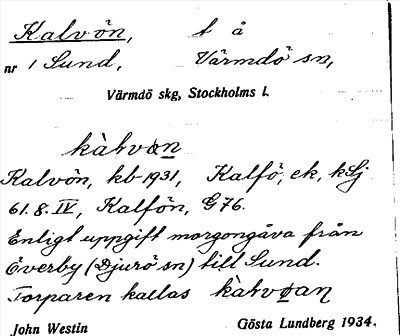 Kalvön, t å
nr 1 Sund, Värmdö sn,
Värmdö skg, Stockholms l.
kàlvøn
Kalvön, kb 1931, Kalfö, ek, kSj
61.8.IV, Kalfön, G76.
Enligt uppgift morgongåva från
Överby (Djurö sn) till Sund.
Torparen kallas kàlvøan
John Westin Gösta Lundberg 1934.